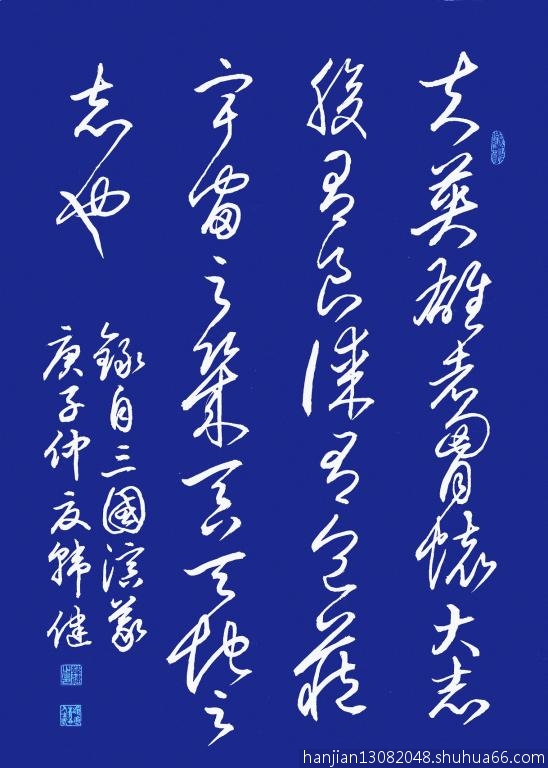 夫英雄者胷懷大志
腹有良謀有包藏
宇宙之機吞天地之
志也
錄自三國演義
庚子仲夏韓健
hanjian13082048.shuhua66.com